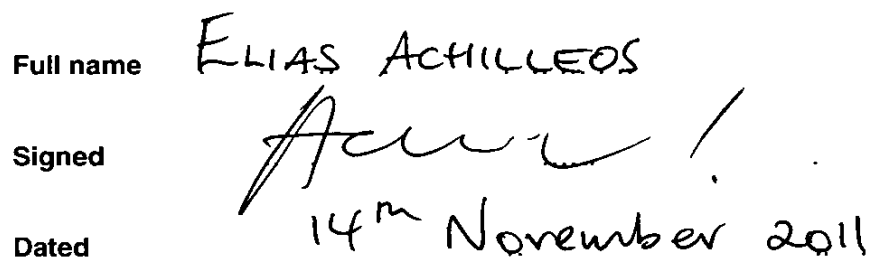 Full name ELIAS ACHILLEOS
Signed
Dated 14th November 2011